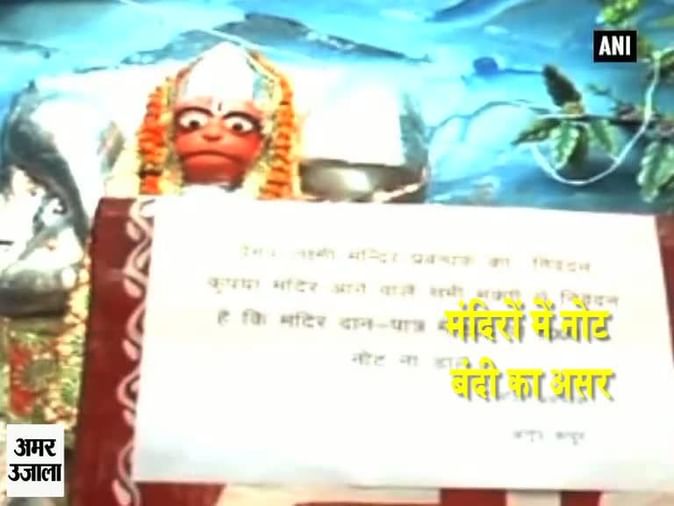 ANI
मन्दिर प्रबन्धक का निवेदन
कृपया मंदिर आने वाले सभी भक्तों से निवेदन
है कि मंदिर दान-पात्र
नोट ना डाले
मंदिरों में नोट
बंदी का असर
अमर
उजाला